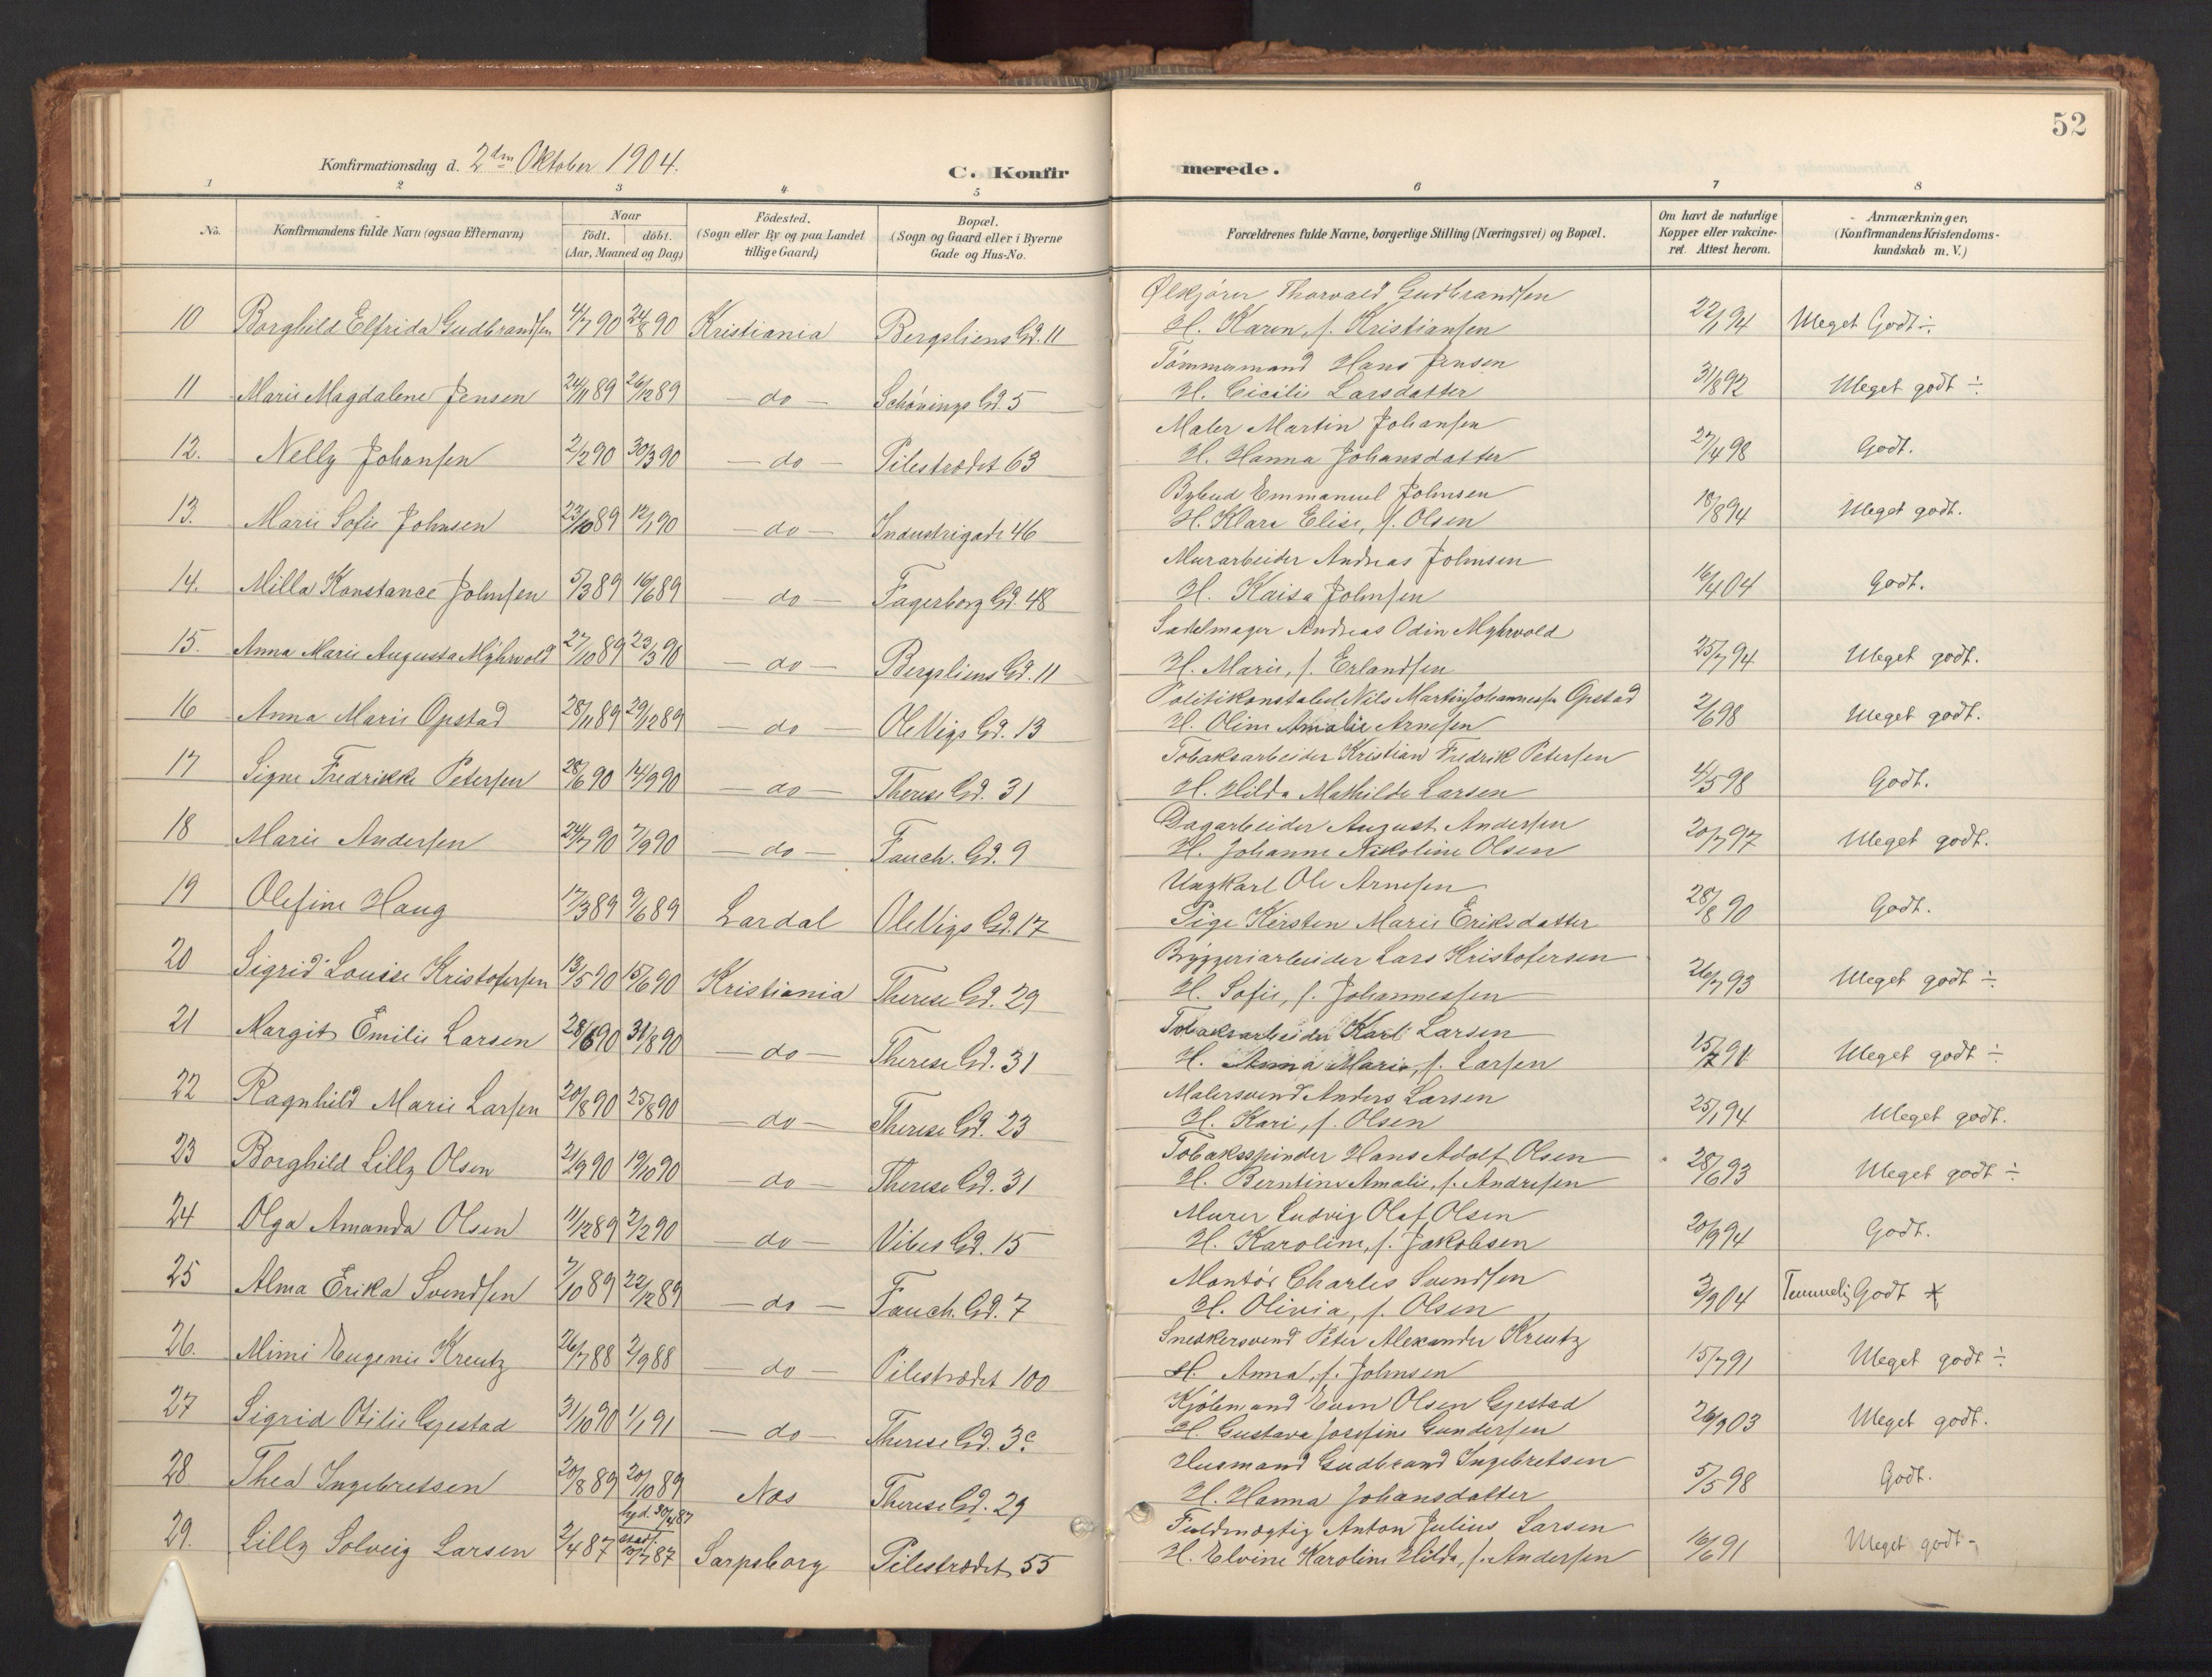 52
Konfirmationsdag d. 2den Oktober 1904.
C. Konfirmerede.
1 2 3 4 5 6 7 8
No.
Konfirmandens fulde Navn (ogsaa Efternavn)
Naar
født. døbt.
(Aar, Maaned og Dag)
Födested.
(Sogn eller By og paa Landet
tillige Gaard)
Bopæl.
(Sogn og Gaard eller i Byerne
Gade og Hus-No.
Forældrenes fulde Navne, borgerlige Stilling (Næringsvei) og Bopæl.
Om havt de naturlige
Kopper eller vakcine-
ret. Attest herom.
Anmærkninger.
(Konfirmandens Kristendoms-
kundskab m. V.)
Ølkjører Thorvald Gudbrandsen
10 Borghild Elfrida Gudbrandsen 4/7 90 24/8 90 Kristiania Bergsliens Gd. 11 H. Karen, f. Kristiansen 22/1 94 Meget Godt ÷
Tömmermand Hans Jensen
11 Marie Magdalene Jensen 24/11 89 26/12 89 — do — Schönings Gd. 5 H. Cicilie Larsdatter 31/8 92 Meget godt ÷
Maler Martin Johansen
12. Nelly Johansen 2/2 90 30/3 90 — do — Pilestrædet 63 H. Hanna Johansdatter 27/4 98 Godt.
Bybud Emmanuel Johnsen
13. Marie Sofie Johnsen 23/10 89 12/1 90 — do — Industrigade 46 H. Klara Elise, f. Olsen 18/8 94 Meget godt.
Murarbeider Andreas Johnsen
14. Milla Konstance Johnsen 5/3 89 16/6 89 — do — Fagerborg Gd. 48 H. Kaisa Johnsen 16/4 04 Godt.
Sadelmager Andreas Odin Myhrvold
15. Anna Marie Augusta Myhrvold 27/10 89 23/3 90 — do — Bergsliens Gd. 11 H. Marie, f. Erlandsen 25/7 94 Meget godt.
Politikonstabel Nils Martin Johannesen Opstad
16 Anna Marie Opstad 28/11 89 29/12 89 — do — Ole Vigs Gd. 13 H. Oline Amalie Arnesen 2/6 98 Meget godt.
Tobaksarbeider Kristian Fredrik Petersen
17 Signe Fredrikke Petersen 28/6 90 14/9 90 — do — Therese Gd. 31 H. Hilda Mathilde Larsen 4/5 98 Godt.
Dagarbeider August Andersen
18 Marie Andersen 24/7 90 7/9 90 — do — Fauch. Gd. 9 H. Johanne Nikoline Olsen 20/7 97 Meget godt.
Ungkarl Ole Arnesen
19 Olefine Haug 17/3 89 9/6 89 Lardal Ole Vigs Gd. 17 Pige Kirsten Marie Eriksdatter 28/8 90 Godt.
Bryggeriarbeider Lars Kristofersen
20 Sigrid Louise Kristofersen 13/5 90 15/6 90 Kristiania Therese Gd. 29 H. Sofie, f. Johannessen 26/7 93 Meget godt ÷
Tobaksarbeider Karl Larsen
21 Margit Emilie Larsen 28/6 90 31/8 90 — do — Therese Gd. 31 H. Anna Marie, f. Larsen 15/7 91 Meget godt ÷
Malersvend Anders Larsen
22 Ragnhild Marie Larsen 20/8 90 25/8 90 — do — Therese Gd. 23 H. Kari, f. Olsen 25/1 94 Meget godt.
Tobaksspinder Hans Adolf Olsen
23 Borghild Lilly Olsen 21/9 90 19/10 90 — do — Therese Gd. 31 H. Berntine Amalie, f. Andresen 28/6 93 Meget godt ÷
Murer Ludvig Olaf Olsen
24 Olga Amanda Olsen 11/12 89 2/2 90 — do — Vibes Gd. 15 H. Karoline, f. Jakobsen 20/9 94 Godt.
Montör Charles Svendsen
25 Alma Erika Svendsen 7/10 89 22/12 89 — do — Fauch. Gd. 7 H. Olivia, f. Olsen 3/9 04 Temmelig Godt
Snedkersvend Peter Alexander Kreutz
26. Mimi Eugenie Kreutz 26/7 88 2/9 88 — do — Pilestrædet 100 H. Anna, f. Johnsen 15/7 91 Meget godt ÷
Kjöbmand Even Olsen Gjestad
27 Sigrid Otilie Gjestad 31/10 90 1/1 91 — do — Therese Gd. 3c H. Gustava Josefine Gundersen 26/9 03 Meget godt.
Husmand Gudbrand Ingebretsen
28 Thea Ingebretsen 20/8 89 20/10 89 Nes Therese Gd. 29 H. Hanna Johansdatter 5/5 98 Godt.
hjd. 30/4 87 Fuldmægtig Anton Julius Larsen
29. Lilly Solveig Larsen 2/4 87 stadf. 10/7 87 Sarpsborg Pilestrædet 55 H. Elvine Karoline Hilda, f. Andersen 16/6 91 Meget godt -